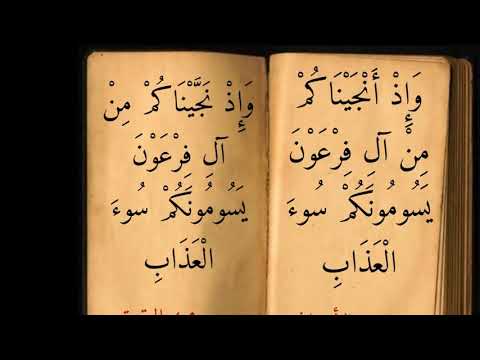 وَإِذْ أَنْجَيْنَاكُمْ
مِنْ آلِ فِرْعَوْنَ
يَسُومُونَكُمْ سُوءَ
الْعَذَابِ
وَإِذْ نَجَّيْنَاكُمْ مِنْ
آلِ فِرْعَوْنَ
يَسُومُونَكُمْ سُوءَ
الْعَذَابِ